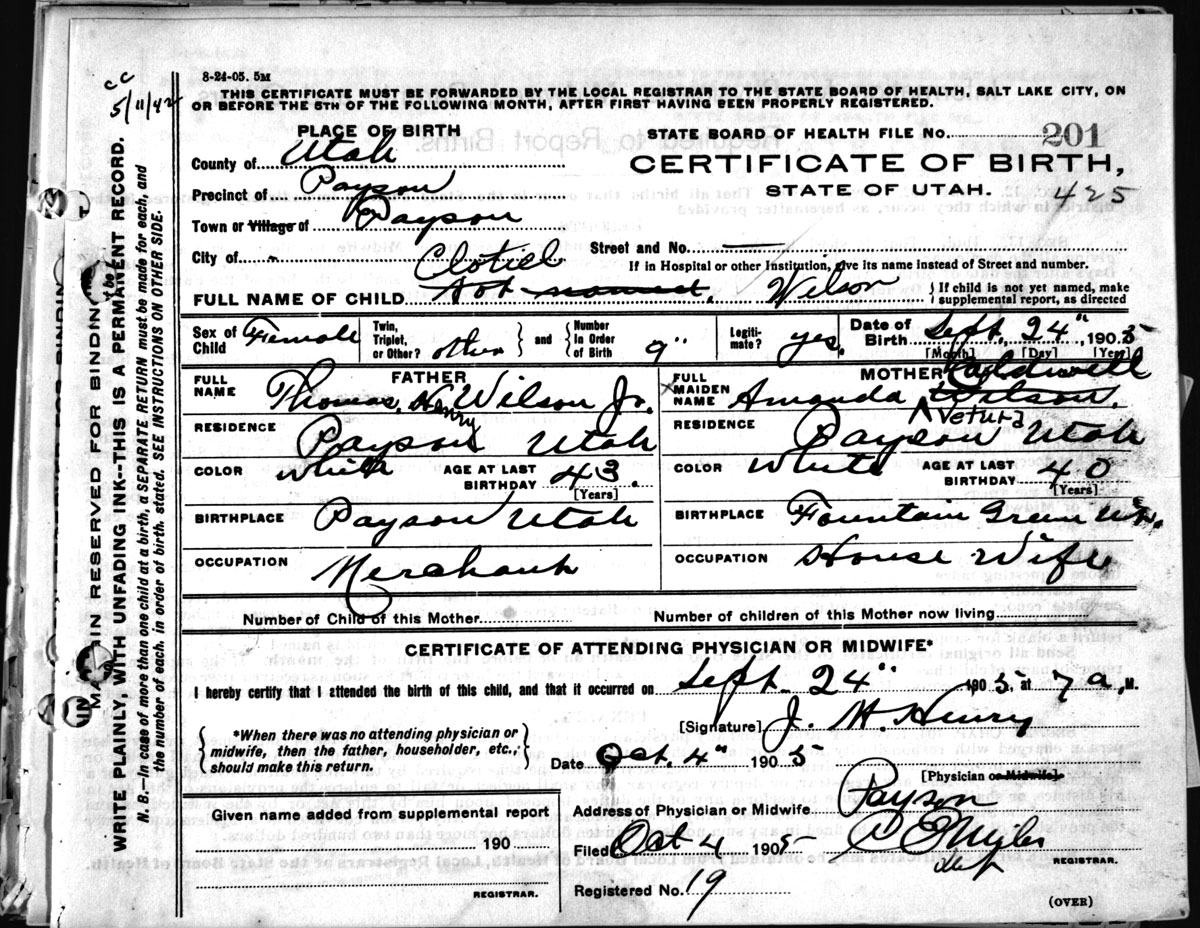 c c
5/11/42
8-24-05. 5M
THIS CERTIFICATE MUST BE FORWARDED BY THE LOCAL REGISTRAR TO THE STATE BOARD OF HEALTH, SALT LAKE CITY, ON
OR BEFORE THE 5TH OF THE FOLLOWING MONTH, AFTER FIRST HAVING BEEN PROPERLY REGISTERED.
PLACE OF BIRTH
STATE BOARD OF HEALTH FILE NO. 201
County of Utah
CERTIFICATE OF BIRTH,
Precinct of Payson
STATE OF UTAH. 425
Town or Village of Payson
City of
Street and No.
If in Hospital or other Institution, give its name instead of Street and number.
Clotiel
FULL NAME OF CHILD Not named. Wilson
If child is not yet named, make supplemental report, as directed
Sex of Child Female
Twin, Triplet, or Other? other
and Number in Order of Birth 9"
Legitimate? yes.
Date of Birth Sept. 24" 1903 5
[Month] [Day] [Year]
FATHER
MOTHER Caldwell
FULL NAME Thomas Henry Wilson Jr.
FULL MAIDEN NAME Amanda Vetura Wilson.
RESIDENCE Payson Utah
RESIDENCE Payson Utah
COLOR White AGE AT LAST BIRTHDAY 43. [Years]
COLOR White AGE AT LAST BIRTHDAY 40 [Years]
BIRTHPLACE Payson Utah
BIRTHPLACE Fountain Green Ut.
OCCUPATION Merchant
OCCUPATION House Wife
Number of Child of this Mother
Number of children of this Mother now living
CERTIFICATE OF ATTENDING PHYSICIAN OR MIDWIFE*
I hereby certify that I attended the birth of this child, and that it occurred on Sept. 24" 1905 at 7 a, M.
*When there was no attending physician or midwife, then the father, householder, etc., should make this return.
[Signature] J. M. Henry
Date Oct. 4" 1905
[Physician or Midwife]
Given name added from supplemental report
190
REGISTRAR.
Address of Physician or Midwife Payson
Filed Oct 4 1905
REGISTRAR.
Registered No. 19
(OVER)
MARGIN RESERVED FOR BINDING
WRITE PLAINLY, WITH UNFADING INK--THIS IS A PERMANENT RECORD.
N. B.—In case of more than one child at a birth, a SEPARATE RETURN must be made for each, and the
number of each, in order of birth, stated. SEE INSTRUCTIONS ON OTHER SIDE.